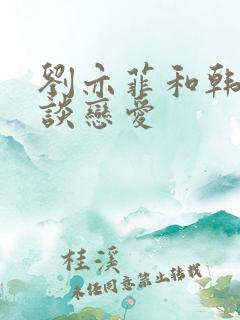 劉亦菲和韓
談戀愛
桂溪
未經同意禁止轉載